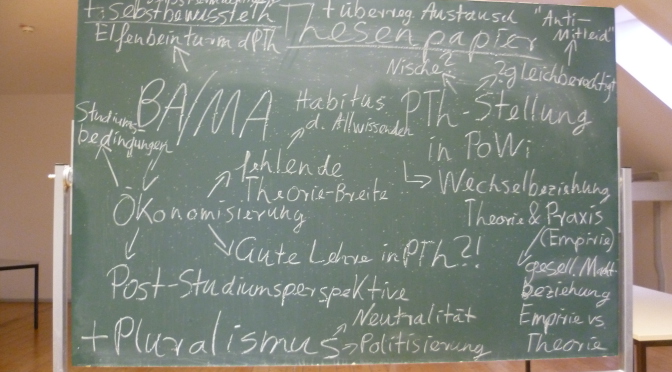 + Selbstbewusstsein
+ überreg. Austausch
"Anti-
Mitleid"
Elfenbeinturm dPTh
Thesenpapier
Nische?
?gleichberechtigt
BA/MA
Habitus
d. Allwissenden
PTh-Stellung
in PoWi
Studiums-
bedingungen
fehlende
Theorie-Breite
Wechselbeziehung
Theorie & Praxis
(Empirie)
Ökonomisierung
Gute Lehre in PTh?!
Post-Studiumsperspektive
gesell. Macht
beziehung
Empirie vs.
Theorie
+ Pluralismus
Neutralität
Politisierung